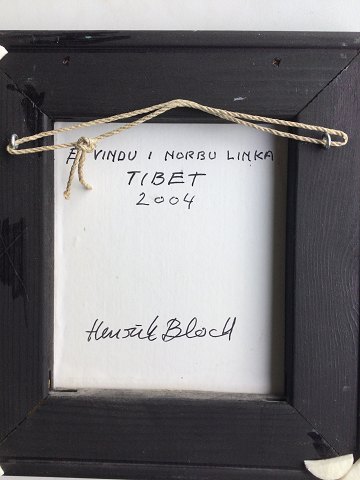 ET VINDU I NORBU LINKA
TIBET
2004
Henrik Bloch